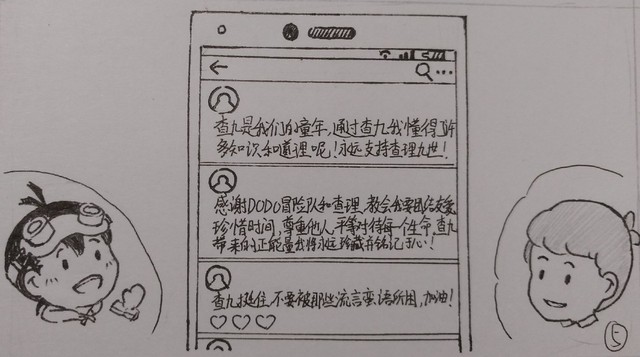 查九是我们的童年,通过查九我懂得了许
多知识和道理呢!永远支持查理九世!
感谢DODO冒险队和查理,教会我要团结友爱
珍惜时间,尊重他人,平等对待每一个生命,查九
带来的正能量我将永远珍藏并铭记于心!
查九挺住,不要被那些流言蛮语所困,加油!
5